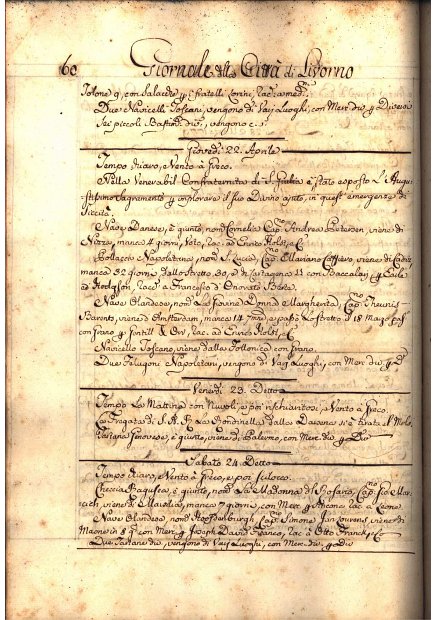 60 Giornale della Città di Livorno
Tolone 9, con Salacche p i fratelli
Due Navicelli Toscani, vengono da Varj Luoghi, con Merc die p Diversi
Sei piccoli Bastim. div., vengono c. s.
Giovedì 22. Aprile
Tempo chiaro, Vento à Greco.
Nella Venerabil Confraternita di S. Giulia è stato esposto L'Augu-
stissimo Sagramento p implorare il suo Divino ajuto, in quest'emergenza di
Siccità.
Nave Danese, è giunto, nom. Cornelia Cap.no Andrea Petersen, viene di
Nizza, manca 4 giorni, Voto, rac. ad
Pollacca Napoletana, nom. S. Lucia, Cap.no viene di Cadice
manca 32 giorni dallo Stretto 20, e di Cartagena 11 con Baccalari p
ad Hodgson, rac. a Francesco d'Onorato Berte.
Nave Olandese, nom. La Giovine Donna Margherita, Cap.no Theunis
Barento, viene d'Amsterdam, manca 14 7mne, e passò Lo Stretto il 18 Marzo pass.
con grano p Gentill & Orr, rac. ad
Navicello Toscano, viene dalla Follonica con grano.
Due Filugoni Napoletani, vengono da Varj Luoghi, con Merc die p D.
Venerdì 23. Detto
Tempo La Mattina con Nuvoli, e poi rischiarito, e Vento à Greco.
La Fregata di S. A. R. La Rondinella dalla Darsena s'è tirata al Molo.
Tartana Genovese, è giunta, viene di Palermo, con Merc. die p Div.
Sabato 24 Detto
Tempo chiaro, Vento à Greco, e poi Scilocco.
Checcia Ragusea, è giunta, nom. La Madonna del Rosario, Cap.no
viene di manca 7 giorni, con Merc p Ancona rac. a Leone
Nave Olandese, nom. Hoofdenburgh Cap.no Simone Jan Lourens, viene di
Maone in 8 g. con Merc p Joseph David Franco, rac. a Otto Franck, e C.
Due Tartane die, vengono da Varj Luoghi, con Merc. die p Div.